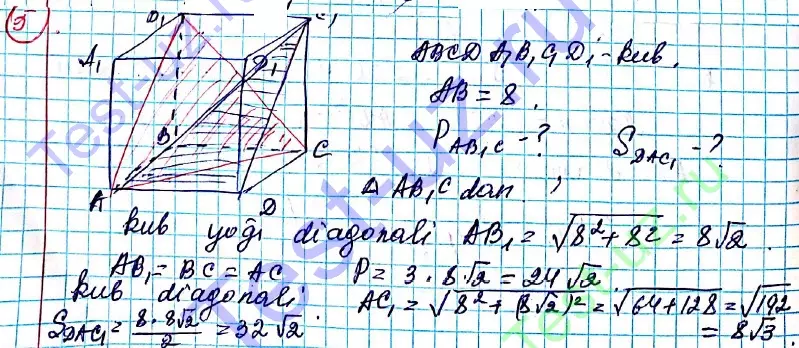 5
B₁ C₁
A₁ D₁
B C
A D
ABCD A₁B₁C₁D₁ - kub.
AB = 8.
P_AB₁C - ? S_DAC₁ - ?
△ AB₁C dan,
kub yog'i diagonali AB₁ = √(8² + 8²) = 8√2.
AB₁ = BC = AC P = 3 · 8√2 = 24√2
kub diagonali AC₁ = √(8² + (8√2)²) = √(64 + 128) = √192
S_DAC₁ = (8 · 8√2)/2 = 32√2. = 8√3.
Test-uz.ru
Test-uz.ru
Test-uz.ru